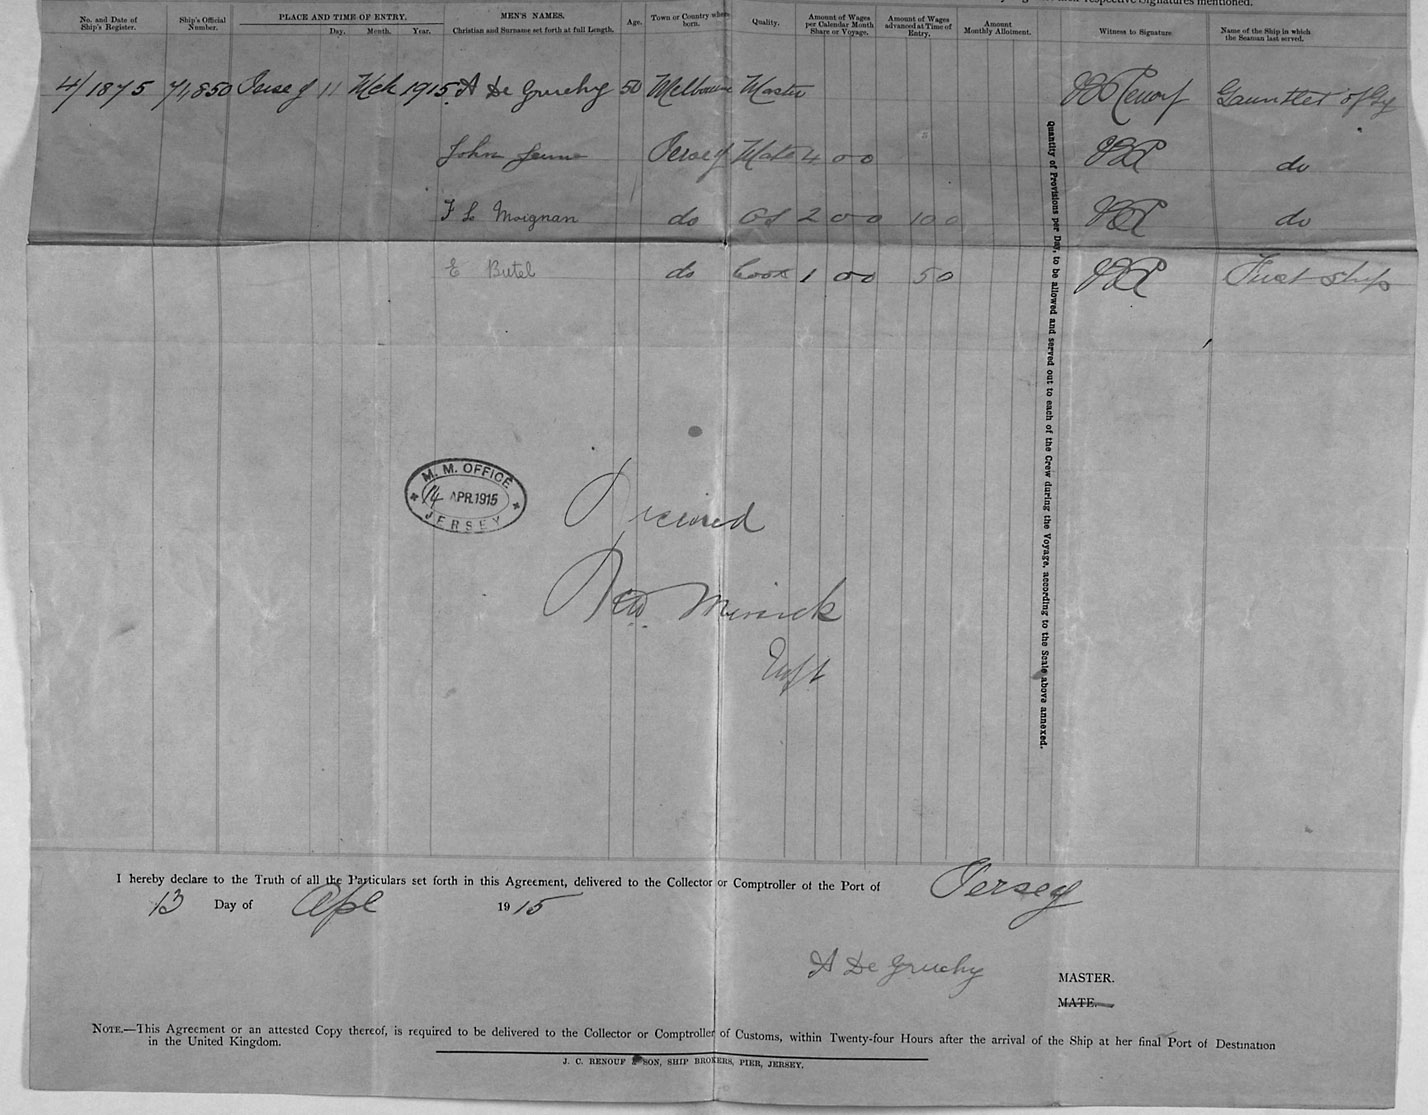 respective Signatures mentioned.
No. and Date of Ship's Register. Ship's Official Number. PLACE AND TIME OF ENTRY. Day. Month. Year. MEN'S NAMES. Christian and Surname set forth at full Length. Age. Town or Country where born. Quality. Amount of Wages per Calendar Month Share or Voyage. Amount of Wages advanced at Time of Entry. Amount Monthly Allotment. Witness to Signature Name of the Ship in which the Seaman last served.
4/1875 71,850 Jersey 11 Mch 1915 A De Gruchy 50 Melbourne Master Renouf Gauntlet of Jy
John Jersey Mate 4 0 0 do
F L Moignan do OS 2 0 0 10 0 do
E Butel do Cook 1 0 0 5 0 First ship
Quantity of Provisions per Day, to be allowed and served out to each of the Crew during the Voyage, according to the Scale above annexed.
M. M. OFFICE
14 APR. 1915
JERSEY
Received
I hereby declare to the Truth of all the Particulars set forth in this Agreement, delivered to the Collector or Comptroller of the Port of Jersey
13 Day of Apl 1915
A De Gruchy MASTER.
MATE.
NOTE.—This Agreement or an attested Copy thereof, is required to be delivered to the Collector or Comptroller of Customs, within Twenty-four Hours after the arrival of the Ship at her final Port of Destination
in the United Kingdom.
J. C. RENOUF & SON, SHIP BROKERS, PIER, JERSEY.